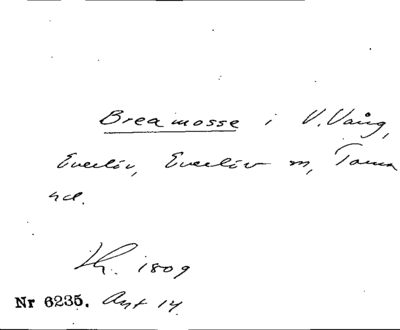 Breamosse i V. Vång,
Everlöv, Everlöv m, Torna
hd.
Kr. 1809
Nr 6235. Ant 14.